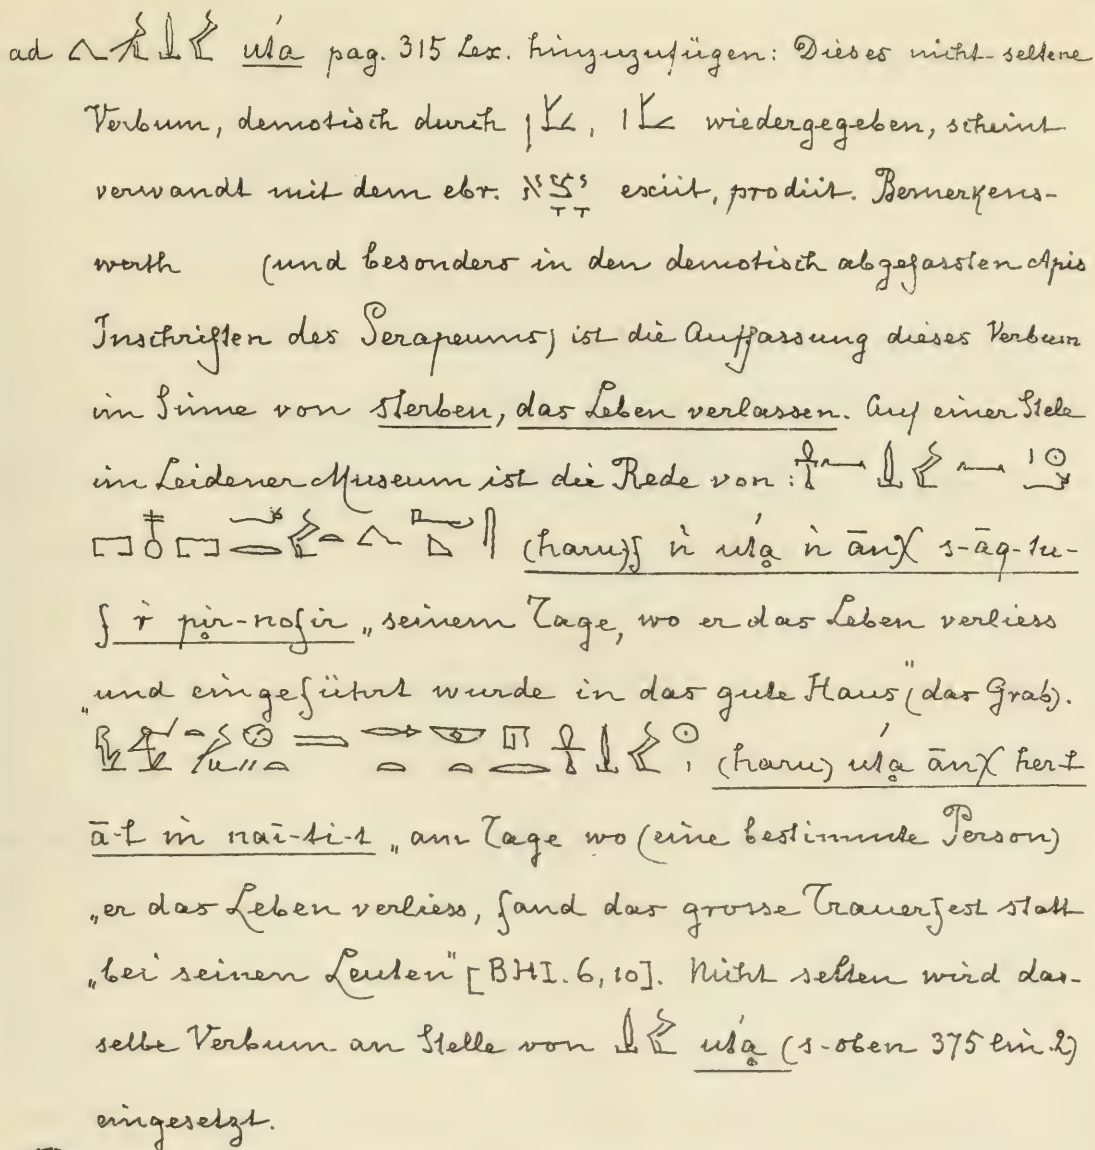 ad ut́a pag. 315 Lex. hinzuzufügen: Dieses nicht-seltene
Verbum, demotisch durch , wiedergegeben, scheint
verwandt mit dem ebr. יָצָא exiit, prodiit. Bemerkens-
werth (und besonders in den demotisch abgefassten Apis
Inschriften des Serapeums) ist die Auffassung dieses Verbum
im Sinne von sterben, das Leben verlassen. Auf einer Stele
im Leidener Museum ist die Rede von:
(haru)f ǹ ut́ạ ǹ ānχ s-āq-tu-
f r̀ pịr-nofir „seinem Tage, wo er das Leben verliess
„und eingeführt wurde in das gute Haus" (das Grab).
(haru) ut́ạ ānχ her-t
ā-t m̀ naī-ti-t „am Tage wo (eine bestimmte Person)
„er das Leben verliess, fand das grosse Trauerfest statt
„bei seinen Leuten" [BHI. 6, 10]. Nicht selten wird das-
selbe Verbum an Stelle von ut́ạ (s. oben 375 lin. 2)
eingesetzt.